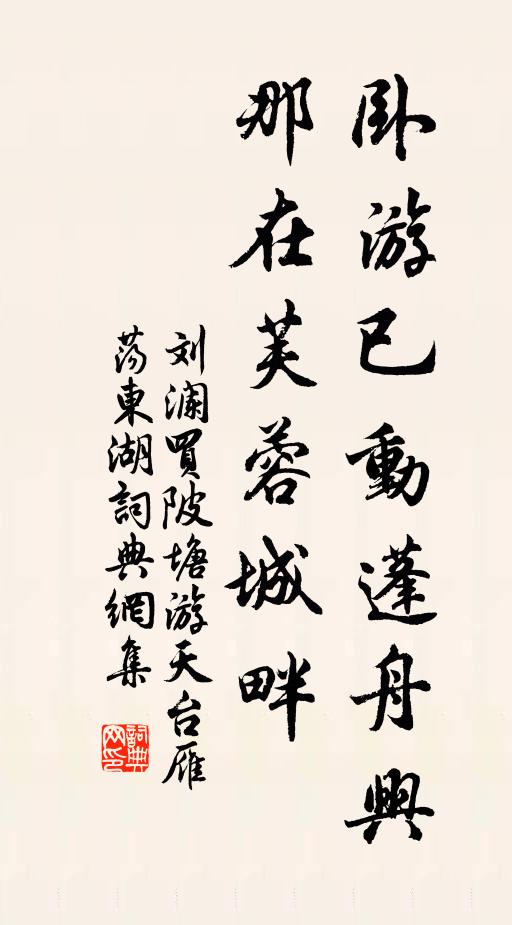 卧游已動蓬舟興
那在芙蓉城畔
刘瀾買陂塘游天台雁
荡東湖詞典網集
詞典网印